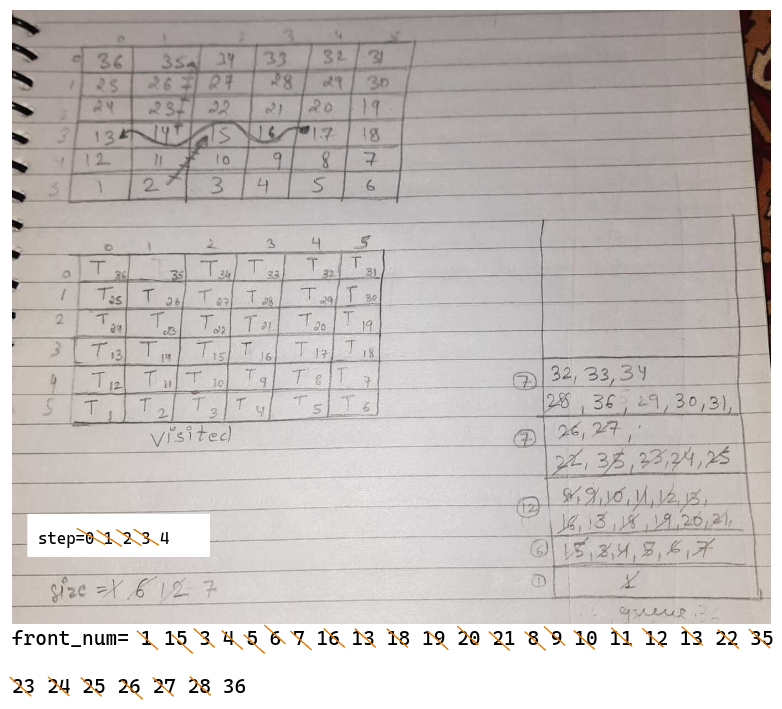 0 1 2 3 4 5
0 36 35 34 33 32 31
1 25 26 27 28 29 30
2 24 23 22 21 20 19
3 13 14 15 16 17 18
4 12 11 10 9 8 7
5 1 2 3 4 5 6
0 1 2 3 4 5
0 T36 T35 T34 T33 T32 T31
1 T25 T26 T27 T28 T29 T30
2 T24 T23 T22 T21 T20 T19
3 T13 T14 T15 T16 T17 T18
4 T12 T11 T10 T9 T8 T7
5 T1 T2 T3 T4 T5 T6
visited
step=0 1 2 3 4
size = 1 6 12 7
7 32, 33, 34
28, 36, 29, 30, 31,
7 26, 27,
22, 35, 23, 24, 25
8, 9, 10, 11, 12, 13,
12 16, 13, 18, 19, 20, 21,
6 15, 3, 4, 5, 6, 7
1 1
queue
front_num= 1 15 3 4 5 6 7 16 13 18 19 20 21 8 9 10 11 12 13 22 35
23 24 25 26 27 28 36